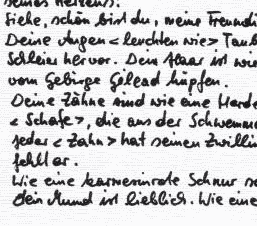 seines Herzens.
Siehe, schön bist du, meine Freundi
Deine Augen <leuchten wie> Taub
Schleier hervor. Dein Haar ist wie
vom Gebirge Gilead hüpfen.
Deine Zähne sind wie eine Herde
<Schafe>, die aus der Schwemme
jeder <Zahn> hat seinen Zwillin
fehlt er.
Wie eine karmesinrote Schnur s
dein Mund ist lieblich. Wie eine